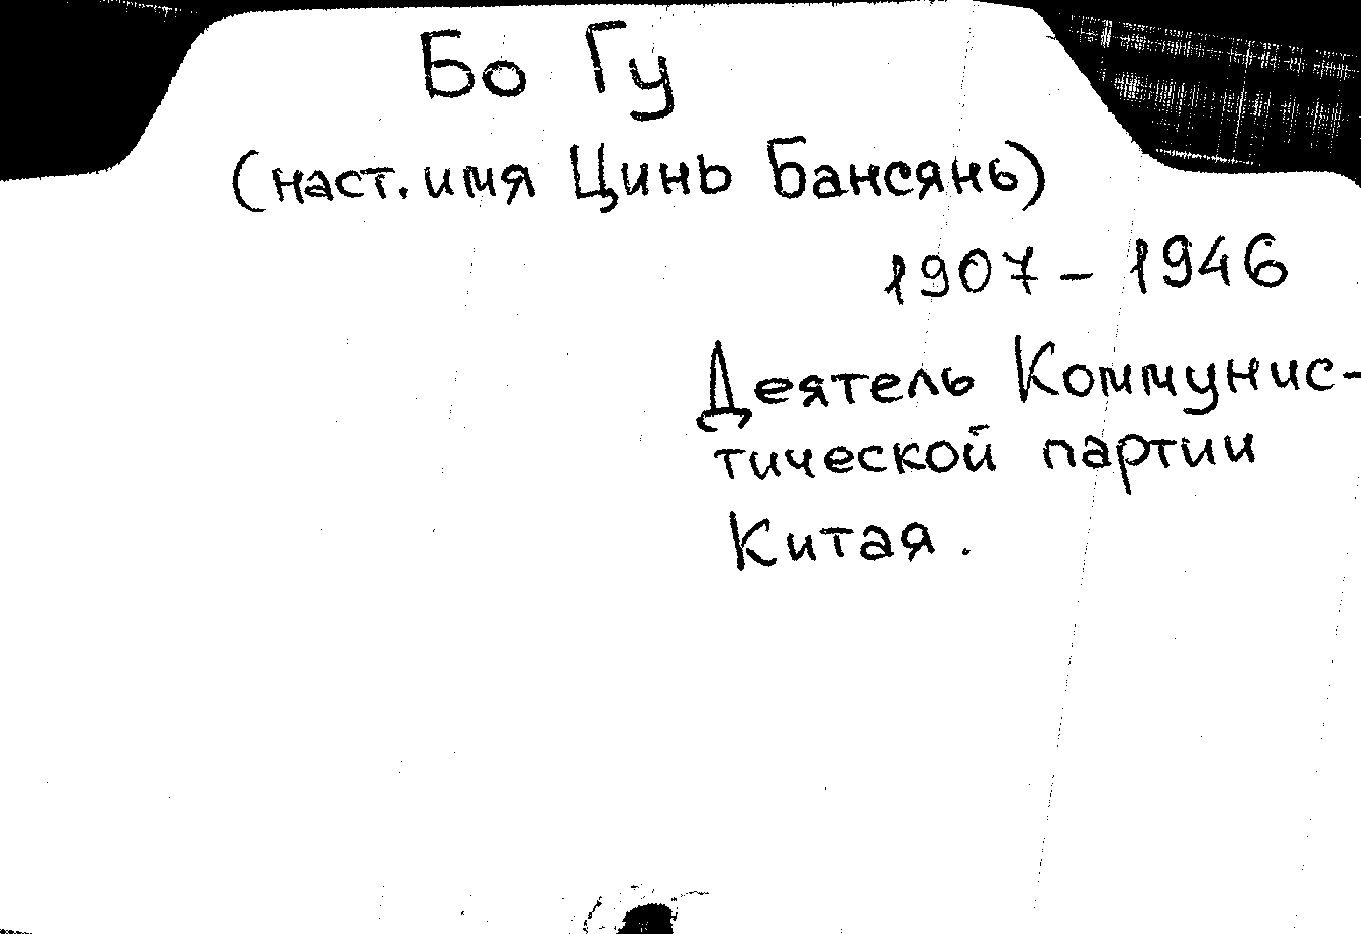 Бо Гу
(наст. имя Цинь Бансянь)
1907 - 1946
Деятель Коммунис-
тической партии
Китая.